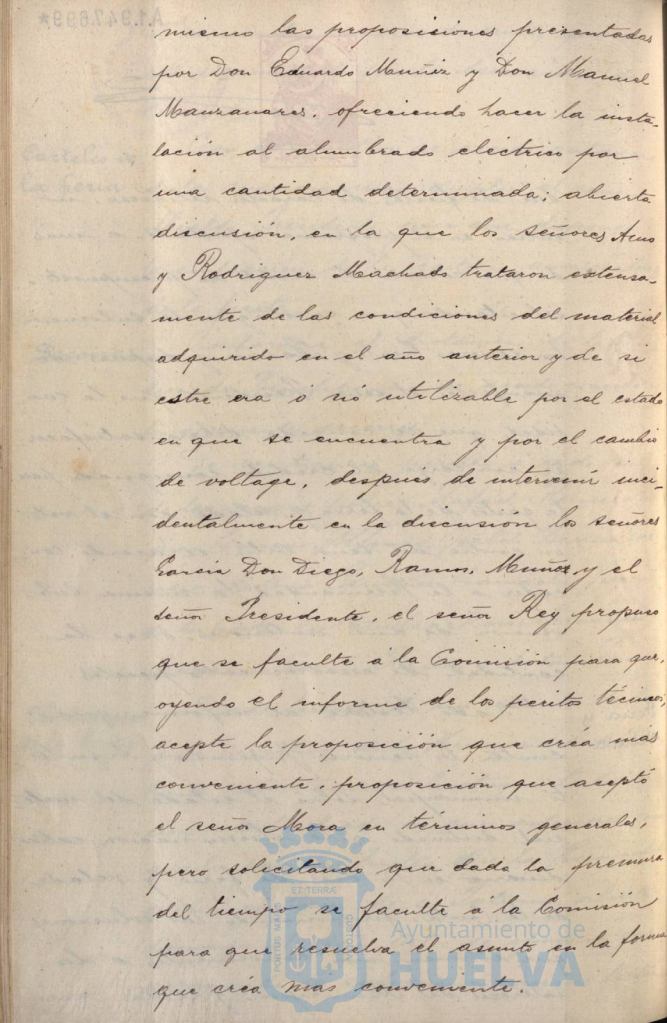 mismo las proposiciones presentadas
por Don Eduardo Muñiz y Don Manuel
Manzanares, ofreciendo hacer la insta-
lación al alumbrado eléctrico por
una cantidad determinada; abierta
discusión, en la que los señores Amo
y Rodriguez Machado trataron extensa-
mente de las condiciones del material
adquirido en el año anterior y de si
estre era ó nó utilizable por el estado
en que se encuentra y por el cambio
de voltage, después de intervenir inci-
dentalmente en la discusión los señores
García Don Diego, Ramos, Muñoz, y el
señor Presidente, el señor Rey propuso
que se faculte á la Comisión para que,
oyendo el informe de los peritos técnicos,
acepte la proposición que créa más
conveniente, proposición que aceptó
el señor Mora en términos generales,
pero solicitando que dada la premura
del tiempo se faculte á la Comisión
para que resuelva el asunto en la forma
que créa mas conveniente.
A.1.947.699*
Carteles
la feria
ET TERRÆ
PORTUS MARIS
CUSTODIA
Ayuntamiento de
HUELVA